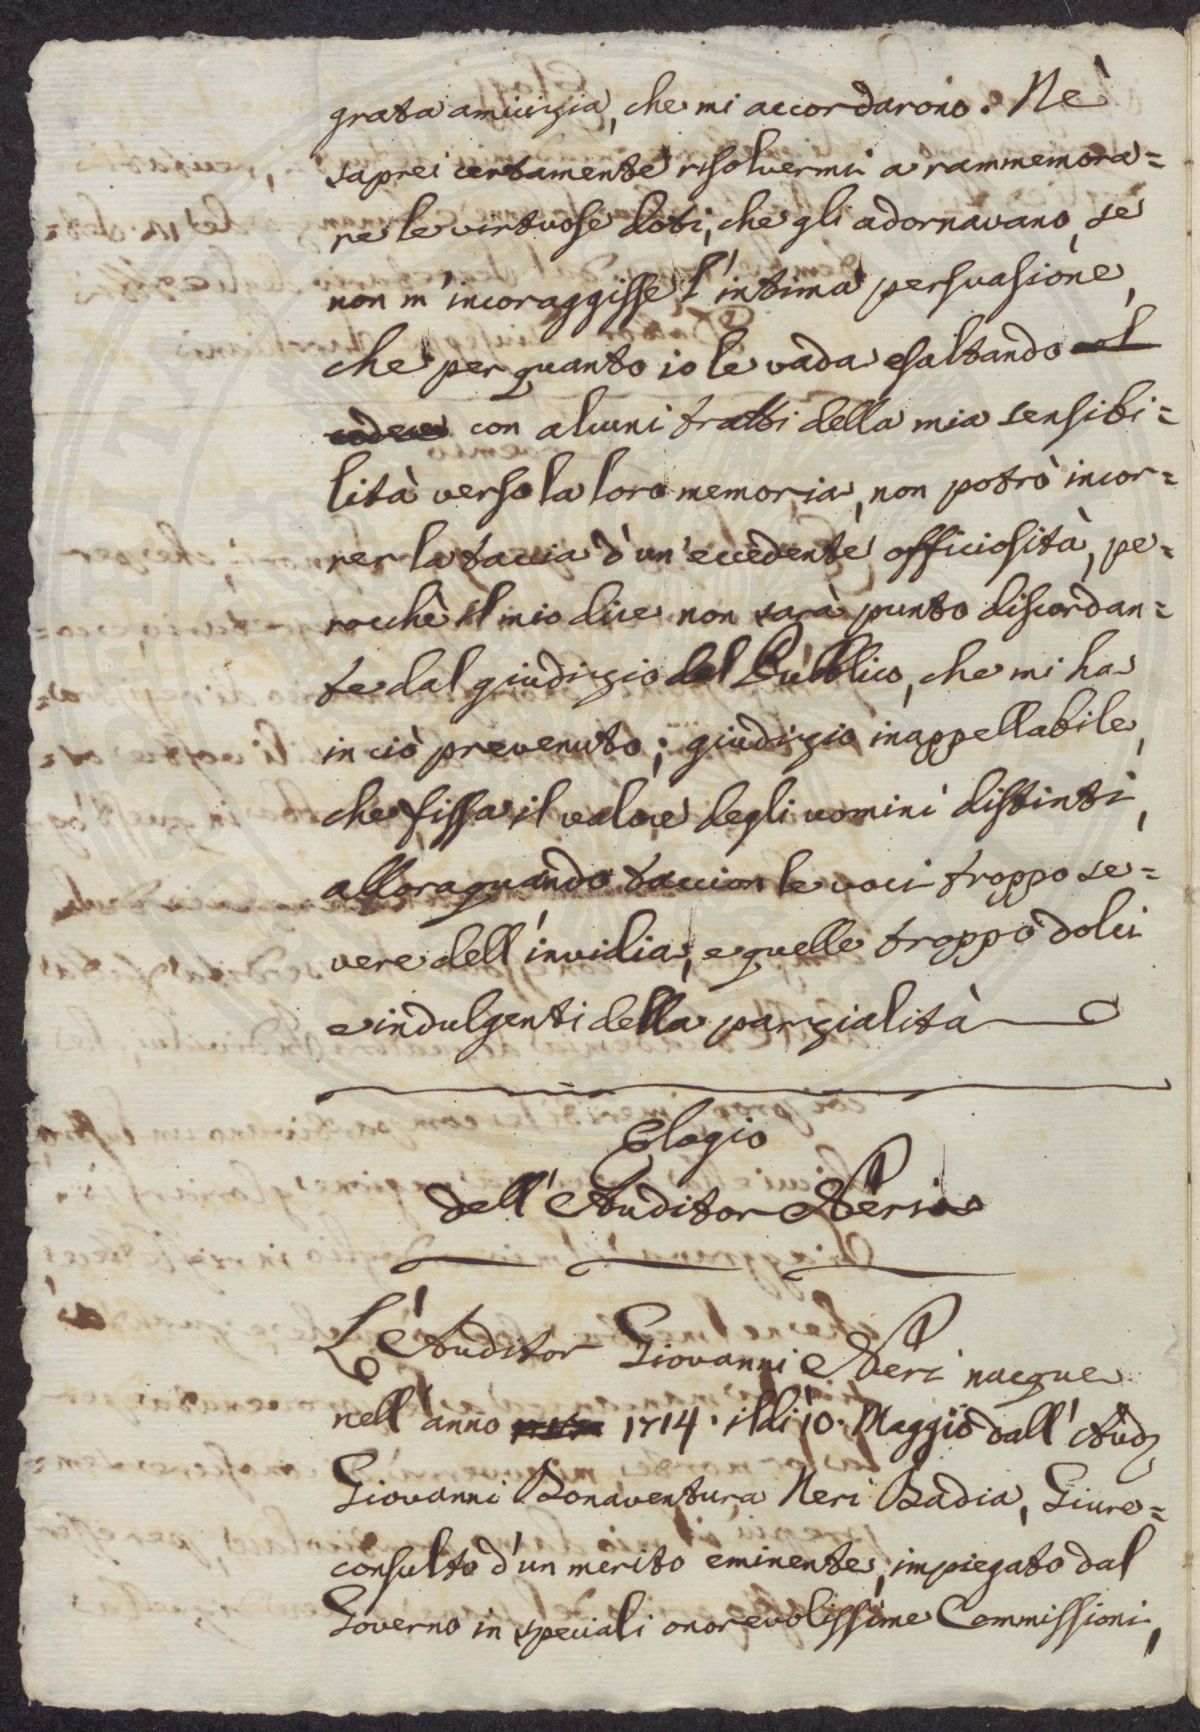 grata amicizia, che mi accordarono. Nè
saprei certamente risolvermi a rammemora=
re le virtuose doti, che gli adornavano, se
non m'incoraggisse l'intima persuasione,
che per quanto io le vada esaltando
con alcuni tratti della mia sensibi=
lità verso la loro memoria, non potrò incor=
rer la taccia d'un'eccedente officiosità, pe=
rocchè il mio dire non sarà punto discordan=
te dal giudizio del Pubblico, che mi ha
in ciò prevenuto; giudizio inappellabile,
che fissa il valore degli uomini distinti,
alloraquando taccion le voci troppo se=
vere dell'invidia, e quelle troppo dolci
e indulgenti della parzialità
Elogio
dell'Auditor Neri
L'Auditor Giovanni Neri nacque
nell'anno 1714. il dì 10. Maggio dall'Aud.
Giovanni Bonaventura Neri Badia, Giure=
consulto d'un merito eminente, impiegato dal
Governo in speciali onorevolissime Commissioni,